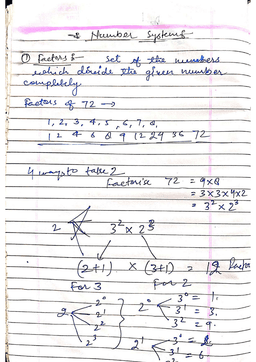 → Number Systems
① Factors :- Set of the numbers
which divide the given number
completely
Factors of 72 →
1, 2, 3, 4, 5, 6, 7, 8,
1 2 4 6 8 9 12 24 36 72
4 ways to take 2
Factorise 72 = 9×8
= 3×3×4×2
= 3² × 2³
2 3² × 2³
(2+1) × (3+1) = 12 factors
For 3 For 2
2 2⁰ 2¹ 2² 2³
2⁰ 3⁰ = 1.
3¹ = 3.
3² = 9.
2¹ 3⁰ = 2
3¹ = 6